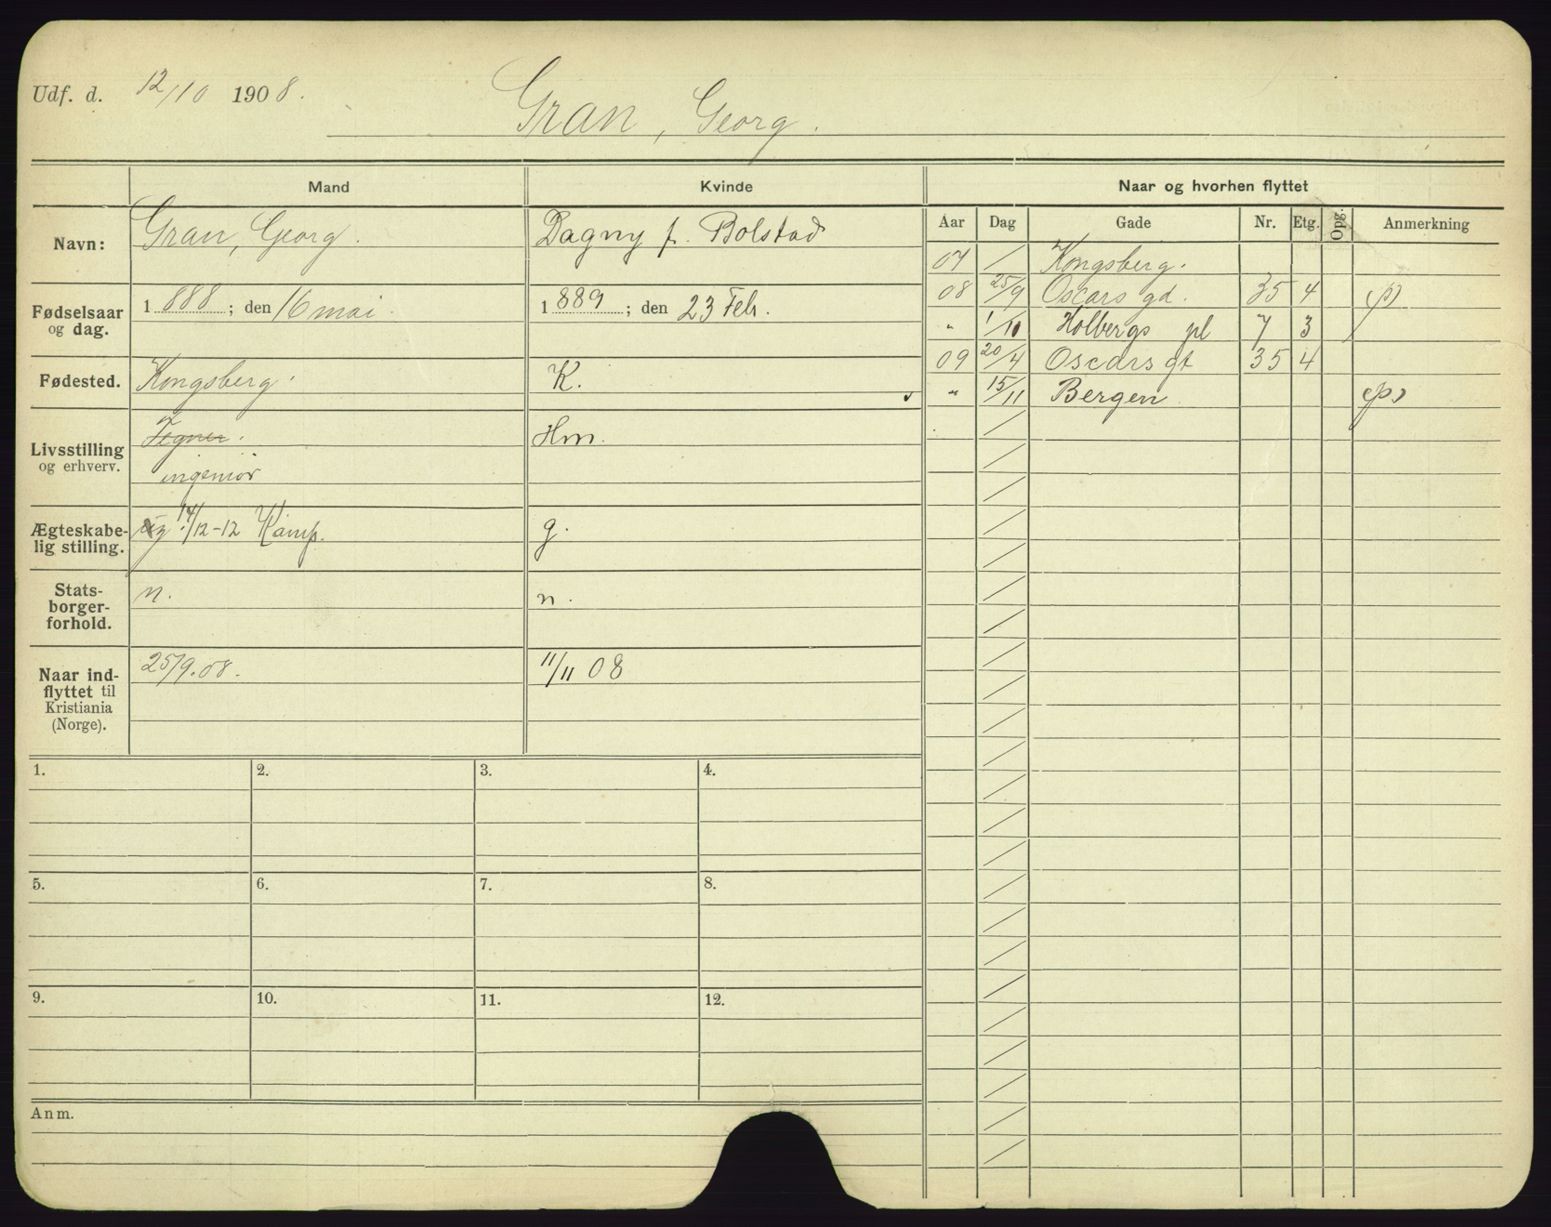 Udf. d. 12/10 1908.
Gran, Georg.
Mand
Kvinde
Naar og hvorhen flyttet
Aar Dag Gade Nr. Etg. Opg. Anmerkning
Navn: Gran, Georg. Dagny f. Bolstad
Fødselsaar og dag. 1888; den 16 mai. 1889; den 23 Febr.
Fødested. Kongsberg. K.
Livsstilling og erhverv. Tegner. Hm.
ingeniør
Ægteskabelig stilling. 14/12-12 Kamp. g.
Statsborgerforhold. n. n.
Naar indflyttet til Kristiania (Norge). 25/9.08. 11/11 08
07 / Kongsberg.
08 25/9 Oscars gd. 35 4 (p)
" 1/10 Holbergs pl 7 3
09 20/4 Oscars gt 35 4
" 15/11 Bergen (p)
1. 2. 3. 4.
5. 6. 7. 8.
9. 10. 11. 12.
Anm.